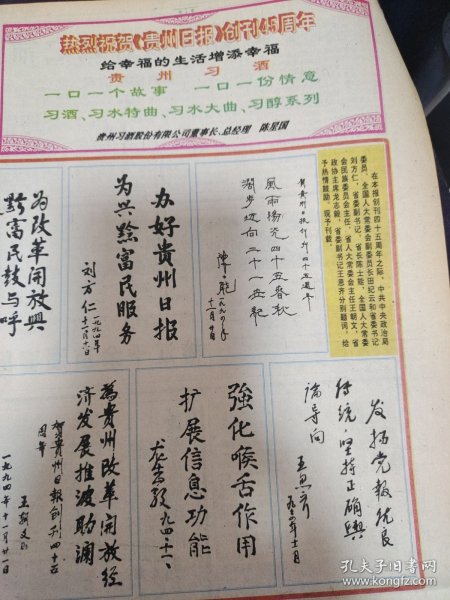 热烈祝贺《贵州日报》创刊45周年
给幸福的生活增添幸福
贵州习酒
一口一个故事 一口一份情意
习酒、习水特曲、习水大曲、习醇系列
贵州习酒股份有限公司董事长、总经理 陈星国
在本报创刊四十五周年之际，中共中央政治局
委员、全国人大常委会副委员长田纪云和省委书记
刘方仁，省委副书记、省长陈士能，全国人大常委
会民族委员会主任、省人大常委会主任王朝文，省
政协主席龙志毅，省委副书记王思齐分别题词，给
予热情鼓励，现予刊载。
贺贵州日报创刊四十五周年
风雨扬花四十五春秋
阔步迈向二十一世纪
陈士能 一九九四年
十一月廿日
办好贵州日报
为兴黔富民服务
刘方仁
一九九四年
十一月十六日
为改革开放兴
黔富民鼓与呼
发扬党报优良
传统，坚持正确舆
论导向
王思齐
九四年十一月
强化喉舌作用
扩展信息功能
龙志毅
九四十一
为贵州改革开放经
济发展推波助澜
贺贵州日报创刊四十五
周年
王朝文
一九九四年十一月廿一日
孔夫子旧书网